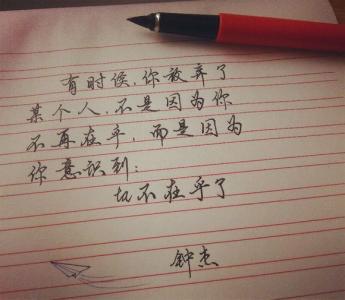 有时候，你放弃了
某个人，不是因为你
不再在乎，而是因为
你意识到：
ta不在乎了
钟杰